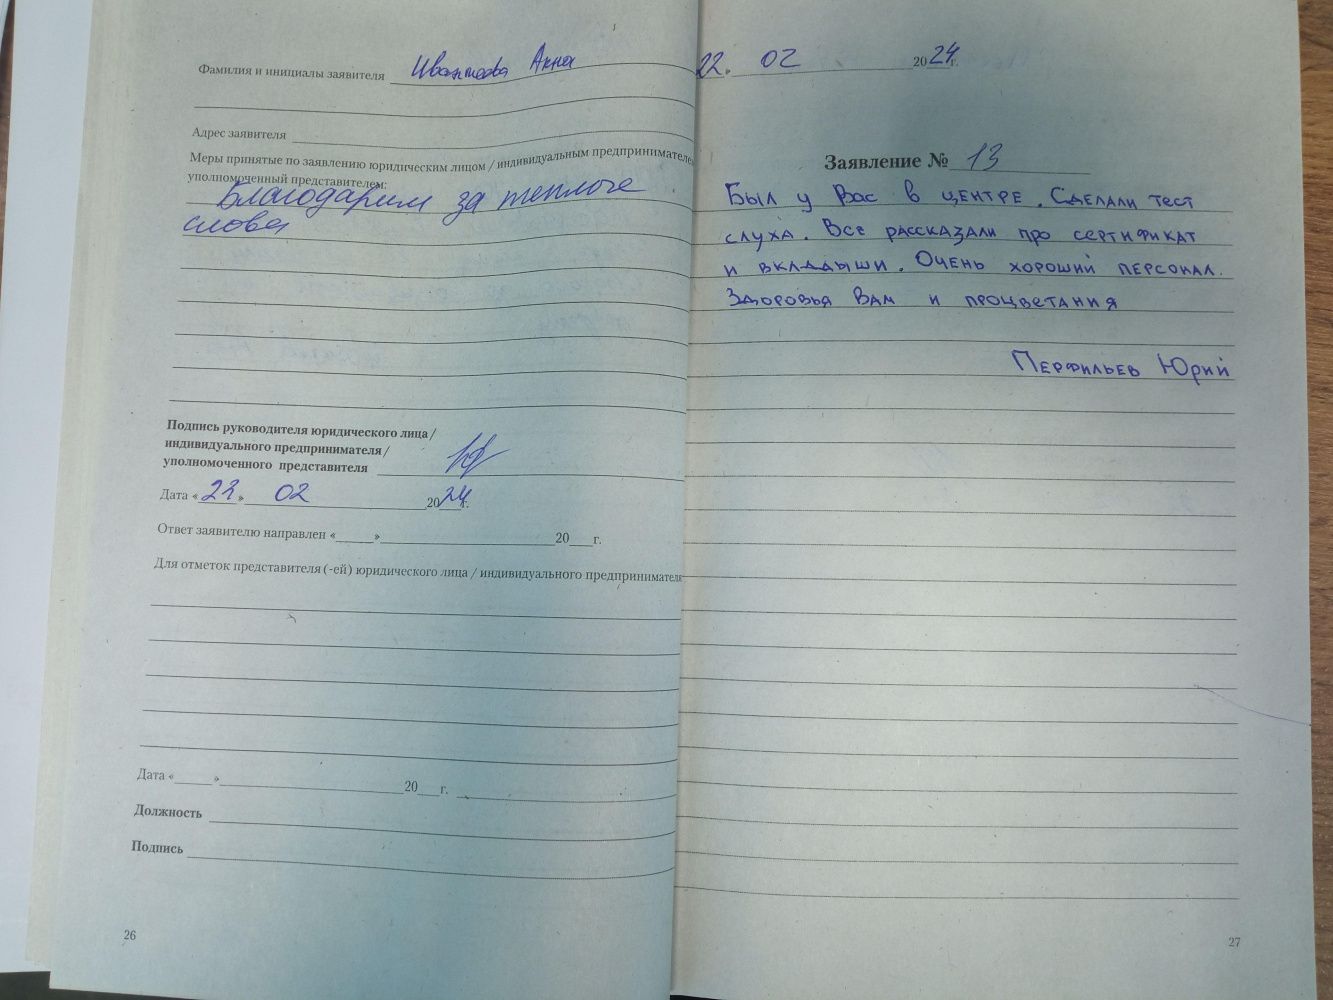 Фамилия и инициалы заявителя Анна
Адрес заявителя
Меры принятые по заявлению юридическим лицом / индивидуальным предпринимателе
уполномоченный представителем:
Благодарим за теплые
слова
Подпись руководителя юридического лица /
индивидуального предпринимателя /
уполномоченного представителя
Дата «22» 02 2024г.
Ответ заявителю направлен «» 20 г.
Для отметок представителя (-ей) юридического лица / индивидуального предпринимателя
Дата «» 20 г.
Должность
Подпись
26
22. 02 2024г.
Заявление № 13
Был у Вас в центре. Сделали тест
слуха. Все рассказали про сертификат
и вкладыши. Очень хороший персонал.
Здоровья Вам и процветания
Перфильев Юрий
27